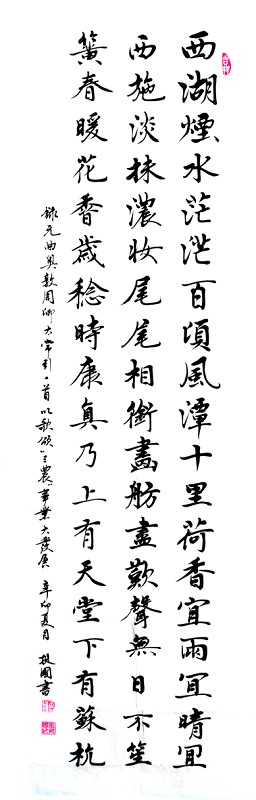 西湖煙水茫茫百頃風潭十里荷香宜雨宜晴宜
西施淡抹濃妝尾尾相銜畫舫盡歡聲無日不笙
簧春暖花香歲稔時康真乃上有天堂下有蘇杭
錄元曲奥敦周卿太常引一首以歌頌"三農"事業大發展 辛卯夏月 國書